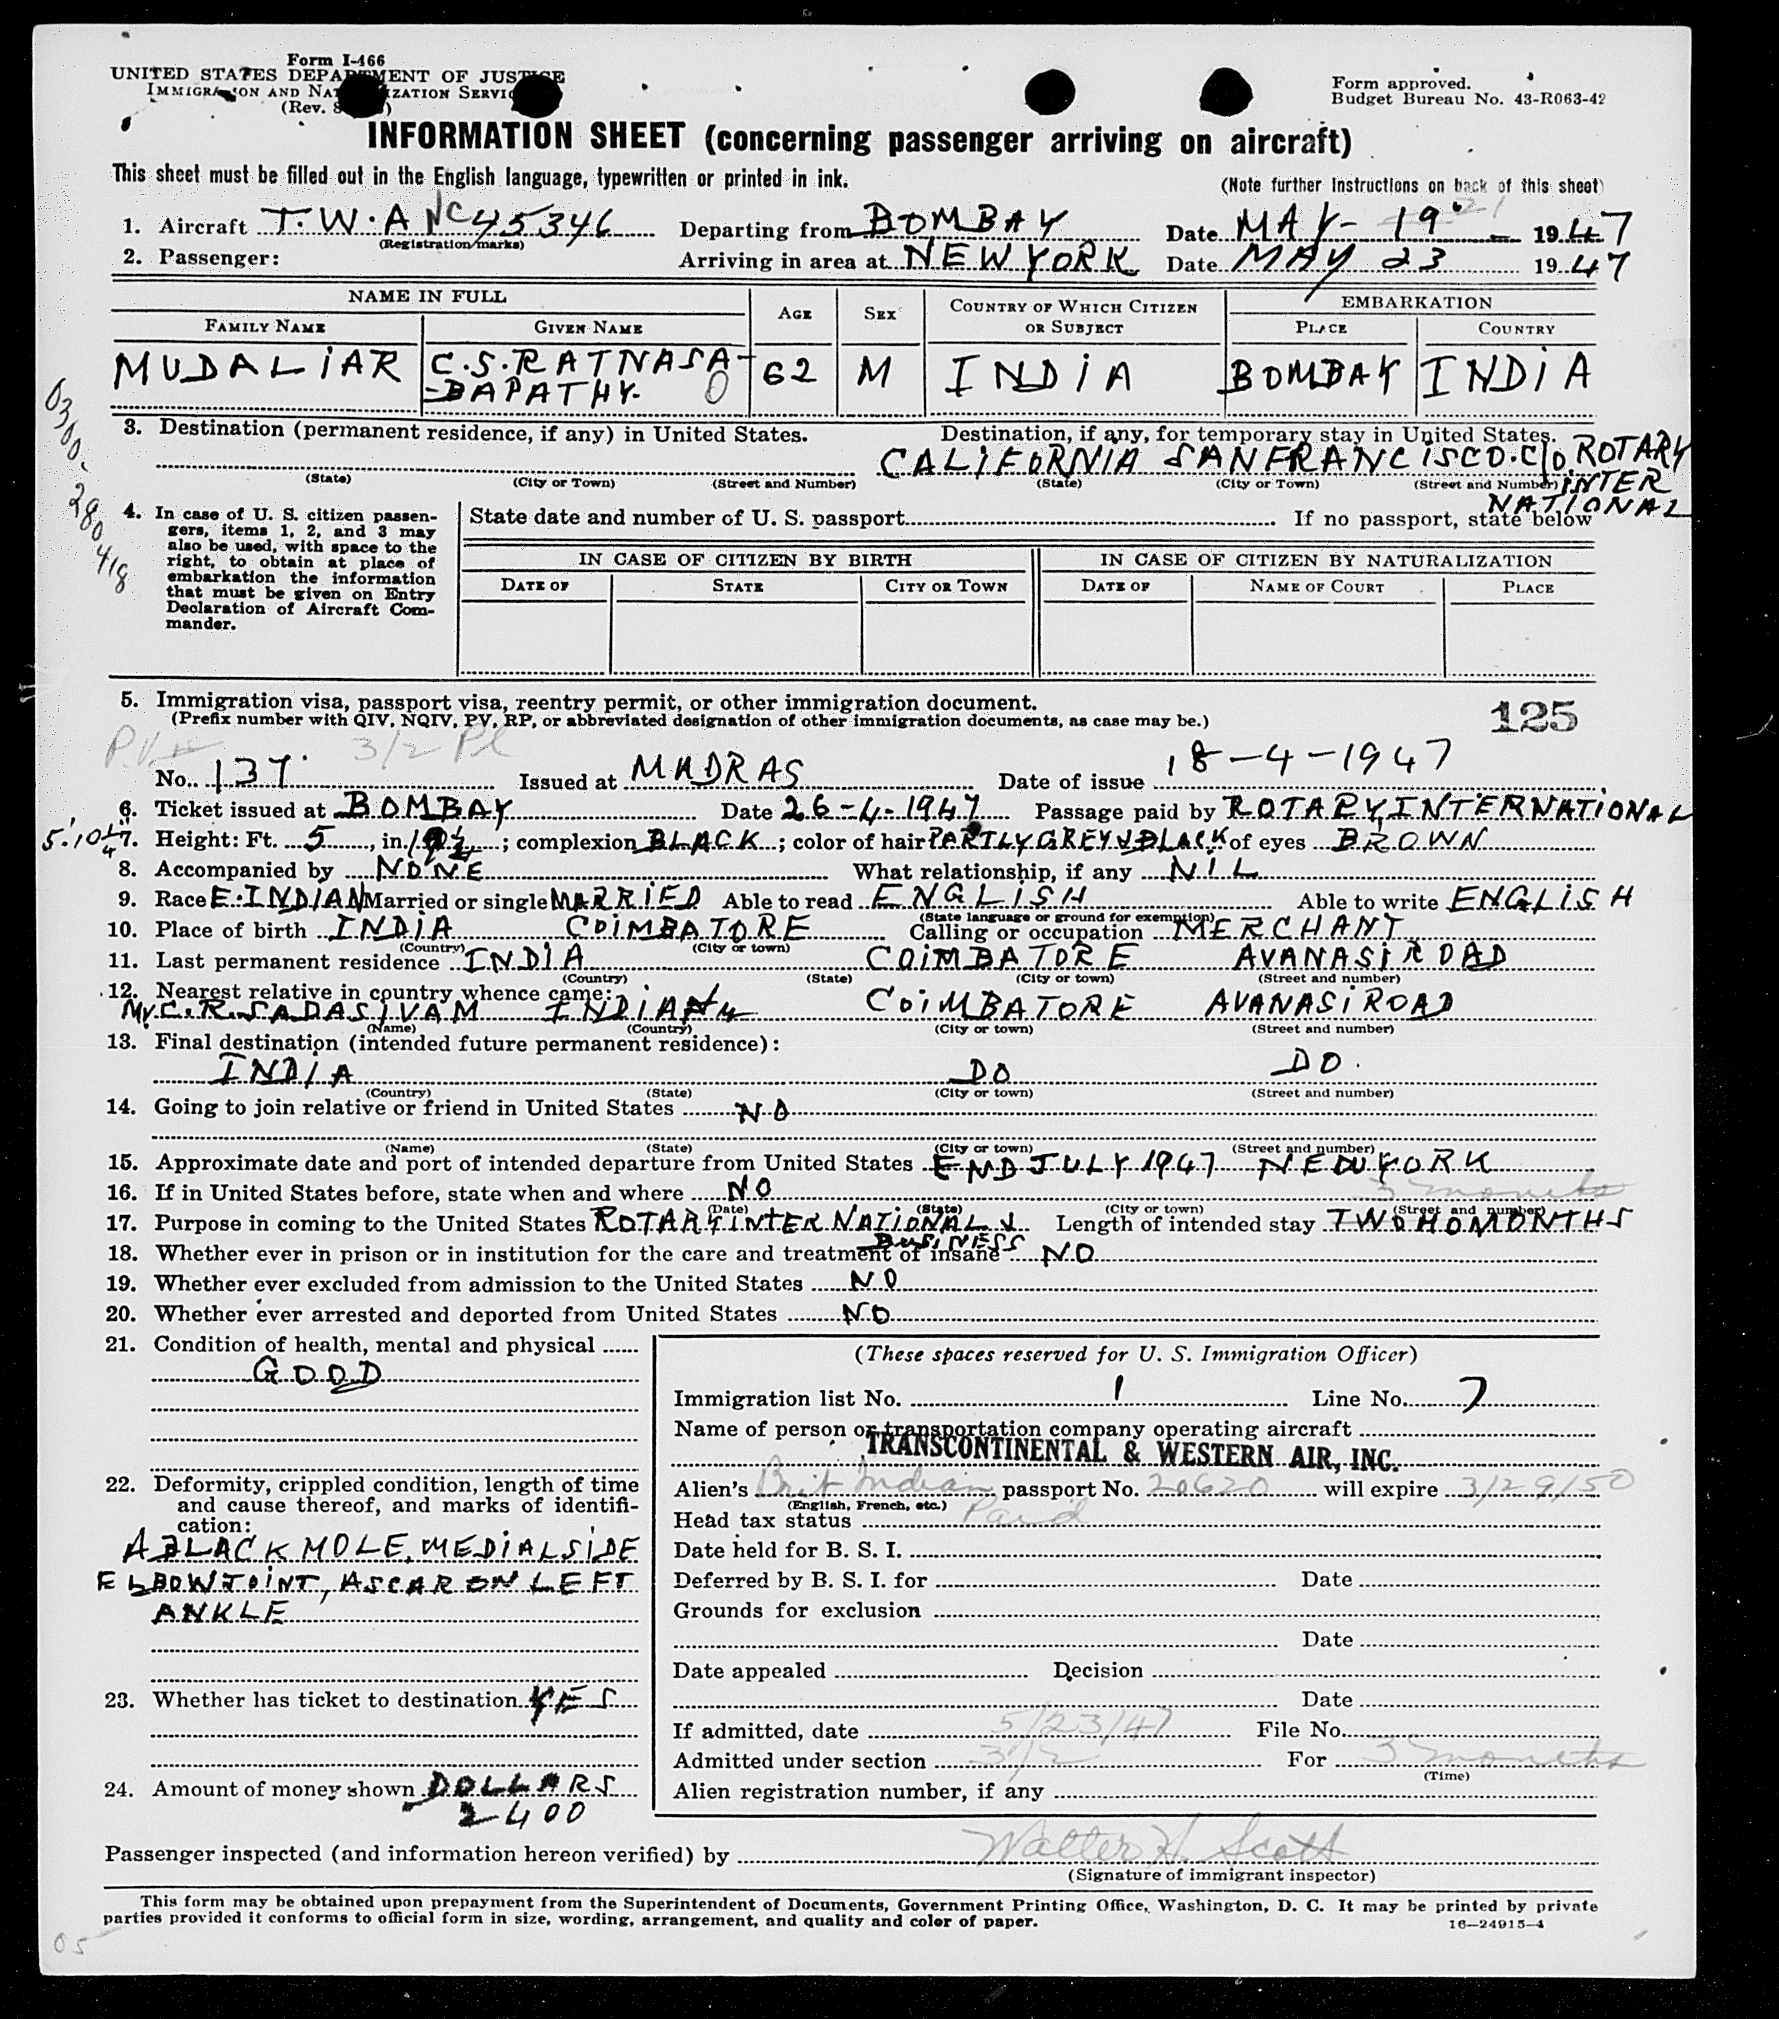 Form I-466
UNITED STATES DEPARTMENT OF JUSTICE
IMMIGRATION AND NATURALIZATION SERVICE
(Rev.
Form approved.
Budget Bureau No. 43-R063-42
INFORMATION SHEET (concerning passenger arriving on aircraft)
This sheet must be filled out in the English language, typewritten or printed in ink.
(Note further instructions on back of this sheet)
1. Aircraft T.W.A NC 45346 Departing from BOMBAY Date MAY- 19 21 1947
(Registration marks)
2. Passenger: Arriving in area at NEW YORK Date MAY 23 1947
NAME IN FULL AGE SEX COUNTRY OF WHICH CITIZEN OR SUBJECT EMBARKATION
FAMILY NAME GIVEN NAME PLACE COUNTRY
MUDALIAR C.S. RATNASA- 62 M INDIA BOMBAY INDIA
-BAPATHY.
0300-280418
3. Destination (permanent residence, if any) in United States. Destination, if any, for temporary stay in United States.
CALIFORNIA SANFRANCISCO. C/O. ROTARY
(State) (City or Town) (Street and Number) (State) (City or Town) (Street and Number) INTER
NATIONAL
4. In case of U. S. citizen passengers, items 1, 2, and 3 may also be used, with space to the right, to obtain at place of embarkation the information that must be given on Entry Declaration of Aircraft Commander.
State date and number of U. S. passport If no passport, state below
IN CASE OF CITIZEN BY BIRTH IN CASE OF CITIZEN BY NATURALIZATION
DATE OF STATE CITY OR TOWN DATE OF NAME OF COURT PLACE
5. Immigration visa, passport visa, reentry permit, or other immigration document.
(Prefix number with QIV, NQIV, PV, RP, or abbreviated designation of other immigration documents, as case may be.)
125
P.V. 3/2 Pl
No. 137 Issued at MADRAS Date of issue 18-4-1947
6. Ticket issued at BOMBAY Date 26-4-1947 Passage paid by ROTARY, INTERNATIONAL
7. Height: Ft. 5, in.; complexion BLACK; color of hair PARTLY GREY & BLACK of eyes BROWN
8. Accompanied by NONE What relationship, if any NIL
9. Race E. INDIAN Married or single MARRIED Able to read ENGLISH Able to write ENGLISH
(State language or ground for exemption)
10. Place of birth INDIA COIMBATORE Calling or occupation MERCHANT
(Country) (City or town)
11. Last permanent residence INDIA COIMBATORE AVANASI ROAD
(Country) (State) (City or town) (Street and number)
12. Nearest relative in country whence came:
Mr. C.R. SADASIVAM INDIAN COIMBATORE AVANASI ROAD
(Name) (Country) (City or town) (Street and number)
13. Final destination (intended future permanent residence):
INDIA DO DO.
(Country) (State) (City or town) (Street and number)
14. Going to join relative or friend in United States NO
(Name) (State) (City or town) (Street and number)
15. Approximate date and port of intended departure from United States END JULY 1947 NEW YORK
16. If in United States before, state when and where NO
3 months
(Date) (State) (City or town) (Street and number)
17. Purpose in coming to the United States ROTARY INTERNATIONAL & Length of intended stay TWO MONTHS
BUSINESS
18. Whether ever in prison or in institution for the care and treatment of insane NO
19. Whether ever excluded from admission to the United States NO
20. Whether ever arrested and deported from United States NO
21. Condition of health, mental and physical
GOOD
22. Deformity, crippled condition, length of time
and cause thereof, and marks of identifi-
cation:
A BLACK MOLE, MEDIAL SIDE
ELBOW JOINT, A SCAR ON LEFT
ANKLE
23. Whether has ticket to destination YES
24. Amount of money shown DOLLARS
2400
(These spaces reserved for U. S. Immigration Officer)
Immigration list No. 1 Line No. 7
Name of person or transportation company operating aircraft
TRANSCONTINENTAL & WESTERN AIR, INC.
Alien's Brit Indian passport No. 20620 will expire 3/29/50
(English, French, etc.)
Head tax status Paid
Date held for B. S. I.
Deferred by B. S. I. for Date
Grounds for exclusion
Date
Date appealed Decision
Date
If admitted, date 5/23/47 File No.
Admitted under section 3/2 For 3 months
(Time)
Alien registration number, if any
Passenger inspected (and information hereon verified) by Walter H. Scott
(Signature of immigrant inspector)
This form may be obtained upon prepayment from the Superintendent of Documents, Government Printing Office, Washington, D. C. It may be printed by private
parties provided it conforms to official form in size, wording, arrangement, and quality and color of paper.
16-24915-4
05